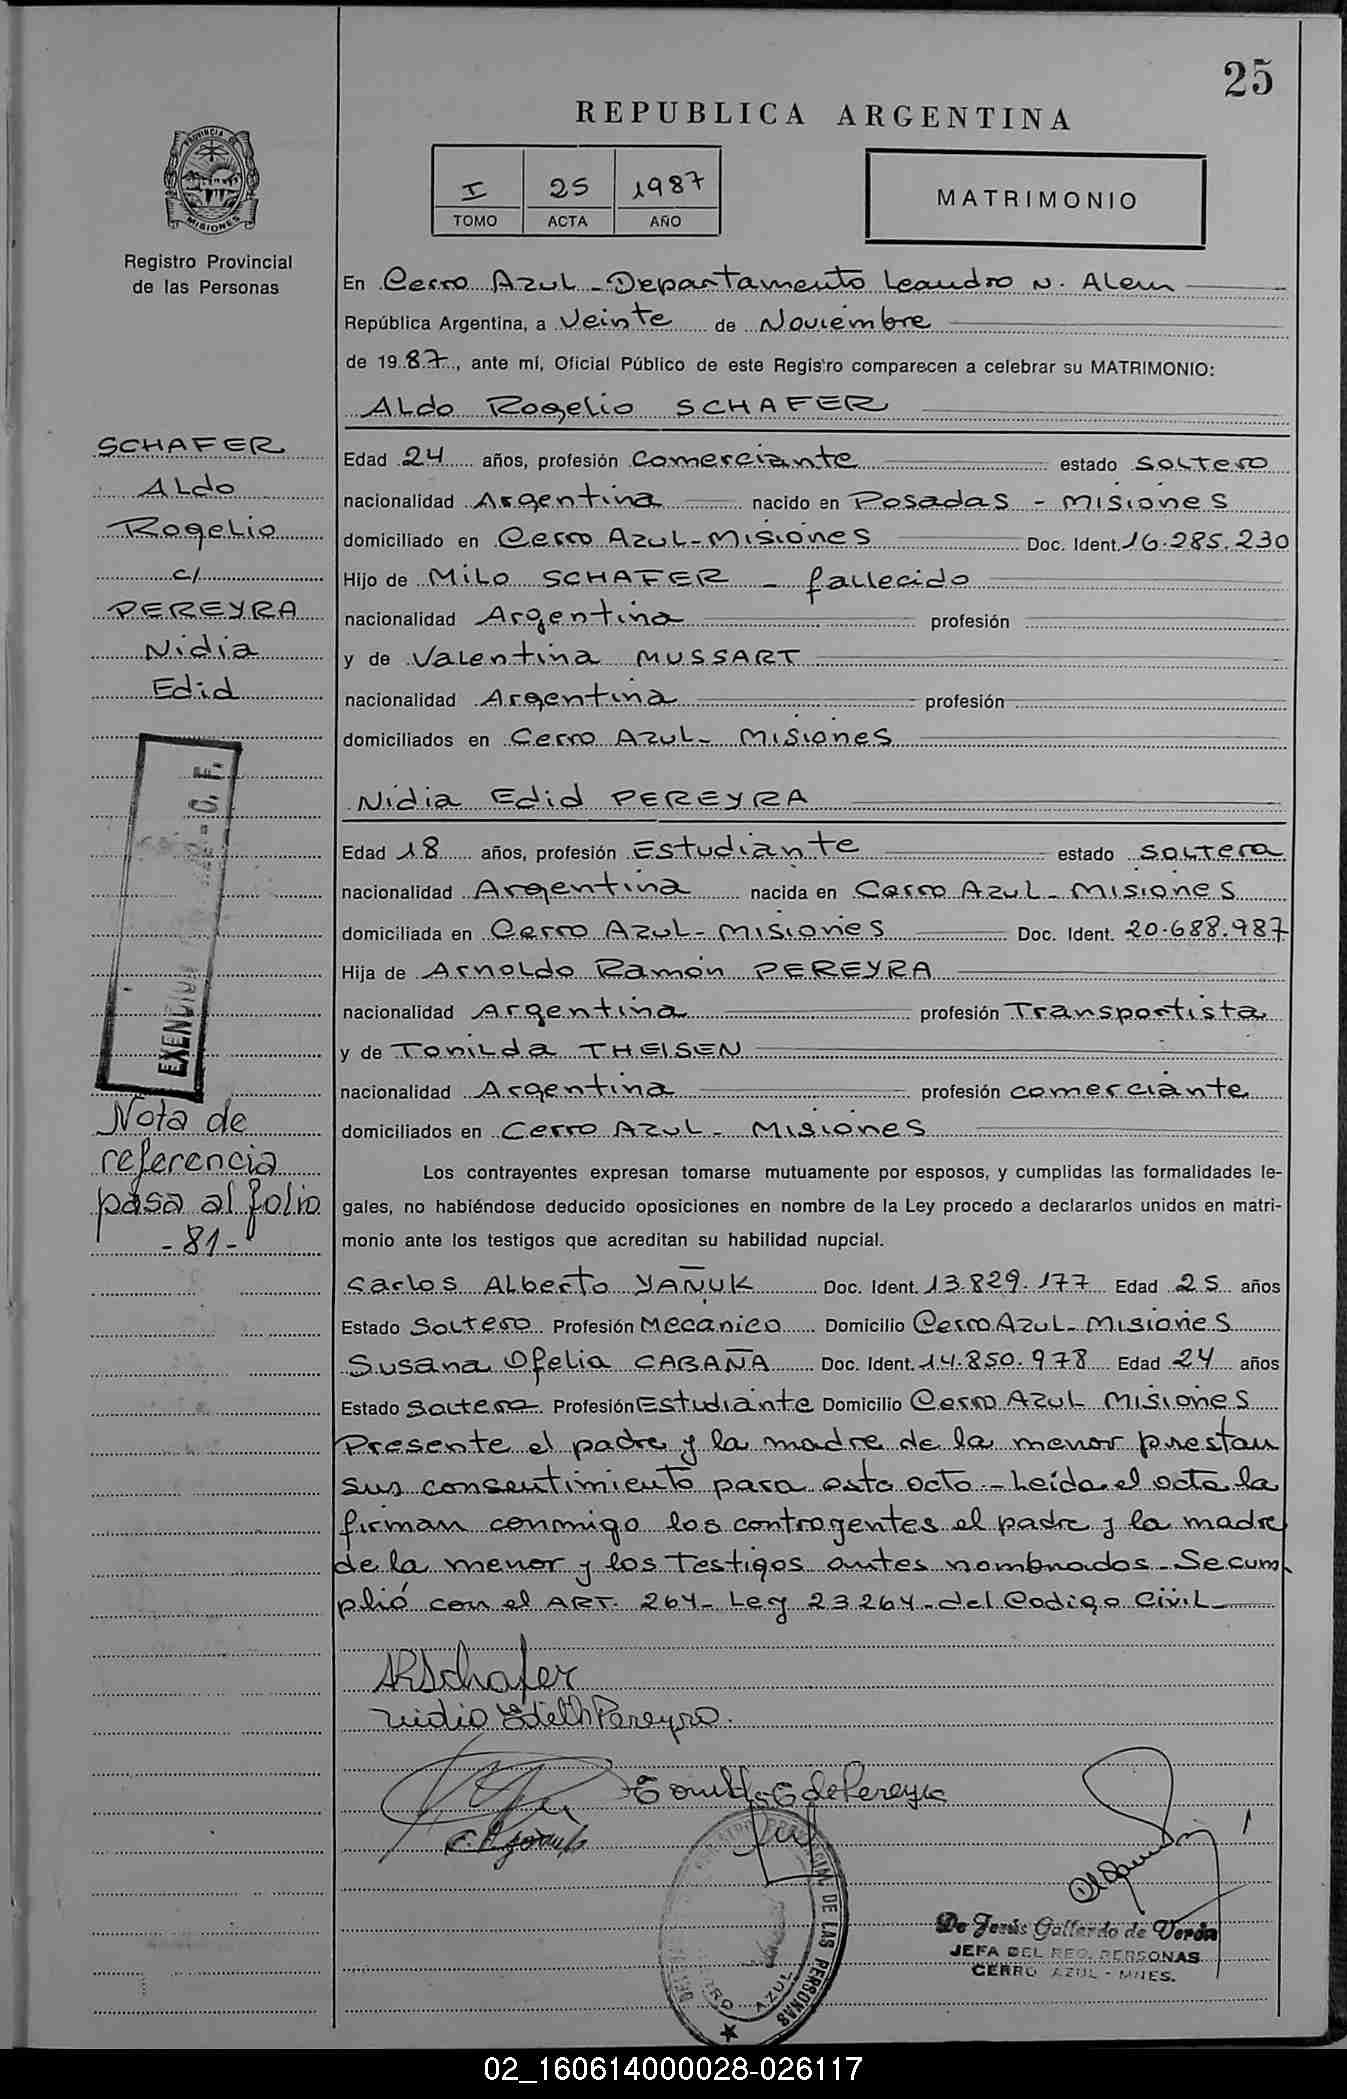 25
REPUBLICA ARGENTINA
I 25 1987
TOMO ACTA AÑO
MATRIMONIO
PROVINCIA DE
MISIONES
Registro Provincial
de las Personas
En Cerro Azul - Departamento Leandro N. Alem
República Argentina, a Veinte de Noviembre
de 1987, ante mí, Oficial Público de este Registro comparecen a celebrar su MATRIMONIO:
Aldo Rogelio SCHAFER
SCHAFER
Aldo
Rogelio
c/
PEREYRA
Nidia
Edid
Edad 24 años, profesión Comerciante estado soltero
nacionalidad Argentina nacido en Posadas - Misiones
domiciliado en Cerro Azul - Misiones Doc. Ident. 16.285.230
Hijo de Milo SCHAFER - fallecido
nacionalidad Argentina profesión
y de Valentina MUSSART
nacionalidad Argentina profesión
domiciliados en Cerro Azul - Misiones
Nidia Edid PEREYRA
Edad 18 años, profesión Estudiante estado soltera
nacionalidad Argentina nacida en Cerro Azul - Misiones
domiciliada en Cerro Azul - Misiones Doc. Ident. 20.688.987
Hija de Arnoldo Ramón PEREYRA
nacionalidad Argentina profesión Transportista
y de Tonilda THEISEN
nacionalidad Argentina profesión comerciante
domiciliados en Cerro Azul - Misiones
Nota de
referencia
pasa al folio
-81-
Los contrayentes expresan tomarse mutuamente por esposos, y cumplidas las formalidades le-
gales, no habiéndose deducido oposiciones en nombre de la Ley procedo a declararlos unidos en matri-
monio ante los testigos que acreditan su habilidad nupcial.
Carlos Alberto YAÑUK Doc. Ident. 13.829.177 Edad 25 años
Estado Soltero Profesión Mecánico Domicilio Cerro Azul - Misiones
Susana Ofelia CABAÑA Doc. Ident. 14.850.978 Edad 24 años
Estado Soltera Profesión Estudiante Domicilio Cerro Azul Misiones
Presente el padre y la madre de la menor prestan
sus consentimiento para este acto - Leída el acta la
firman conmigo los contrayentes el padre y la madre
de la menor y los testigos antes nombrados - Se cum
plió con el ART. 264 - Ley 23264 - del Codigo Civil -
ARSchafer
Nidia Edith Pereyra.
de Pereyra
De Jesús Gallardo de Verón
JEFA DEL REG. PERSONAS
CERRO AZUL - MNES.
DE LAS PERSONAS
AZUL
02_160614000028-026117